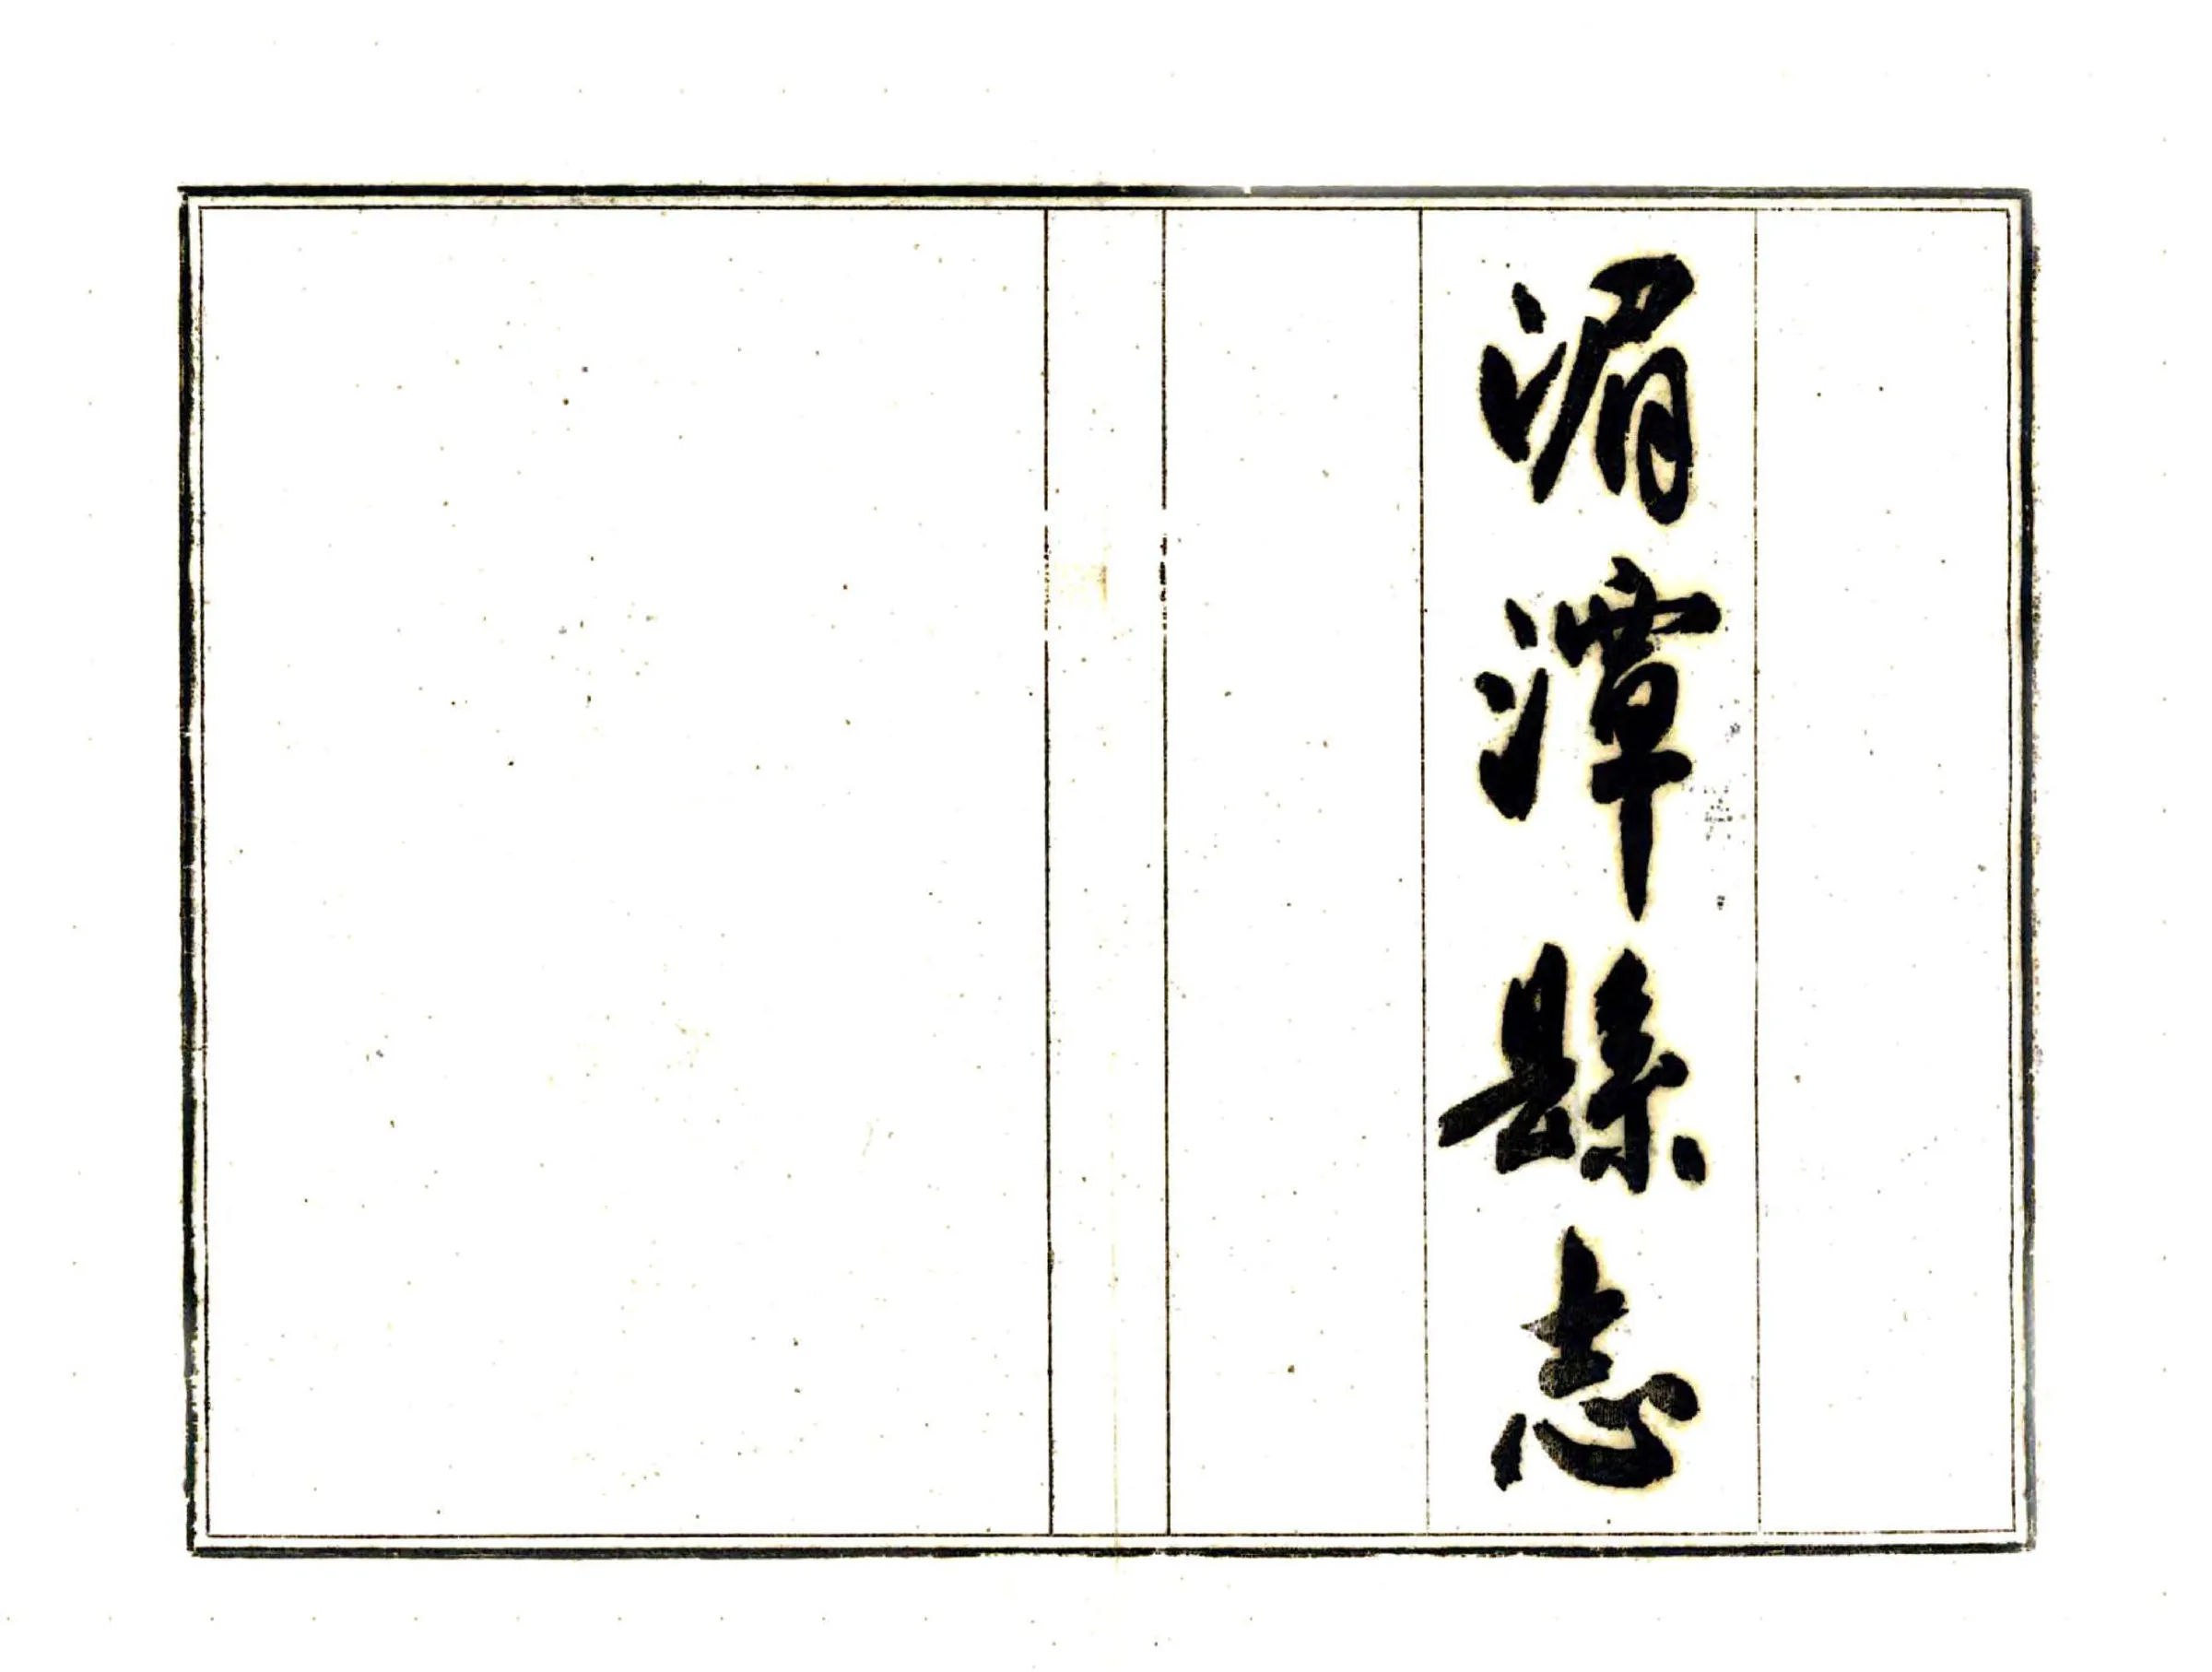 湄潭縣志